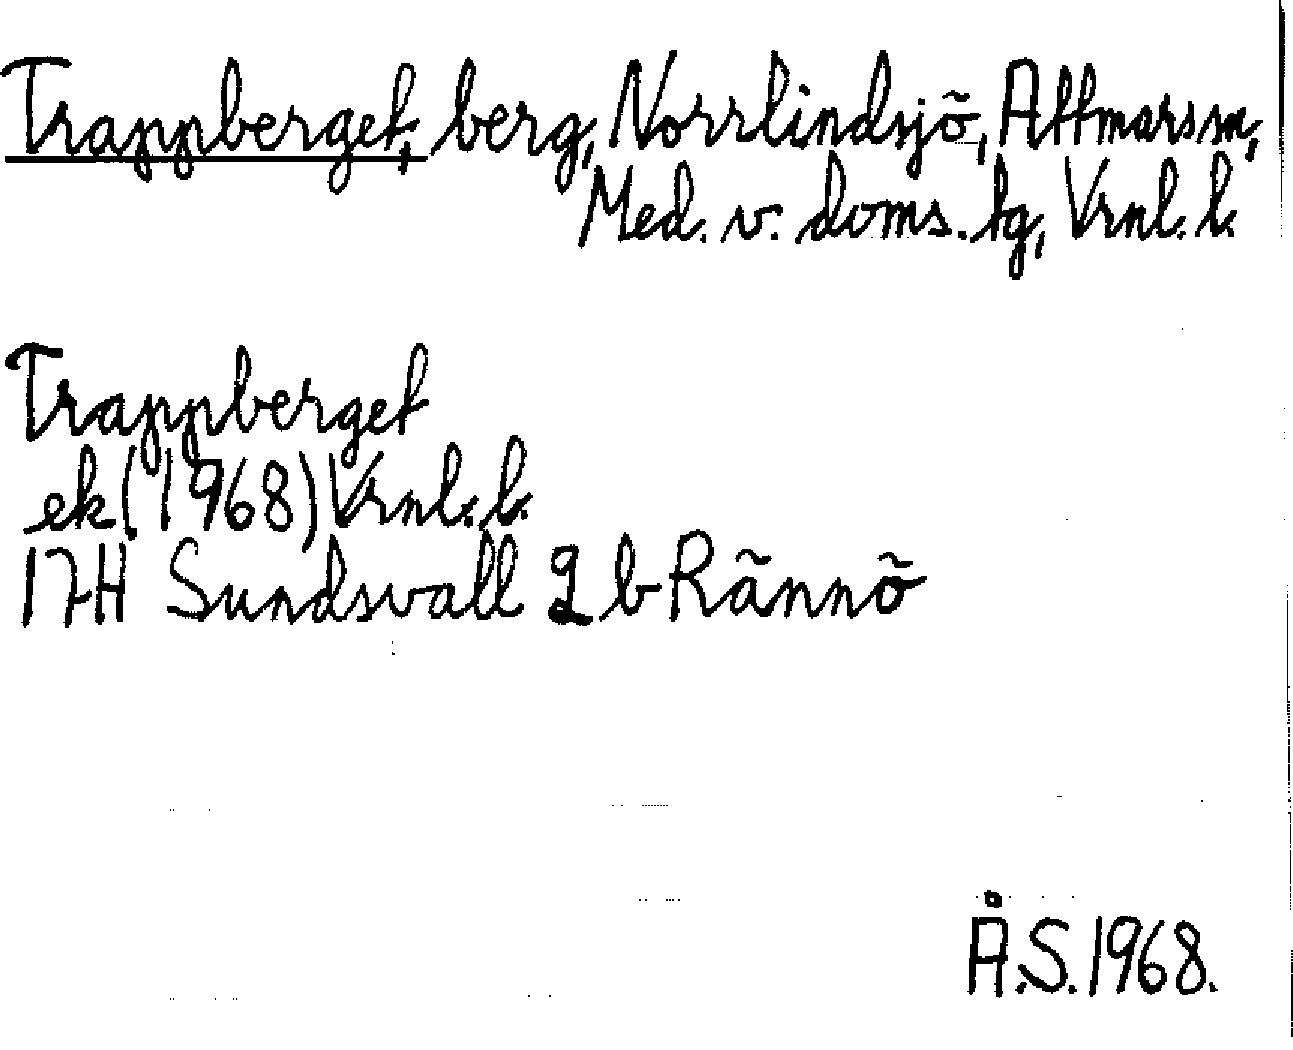 Trappberget, berg, Norrlindsjö, Attmars sn,
Med. v. doms. tg, Vrnl. l.
Trappberget
ek (1968) Vrnl. l.
17H Sundsvall 2 b Rännö
Å.S. 1968.